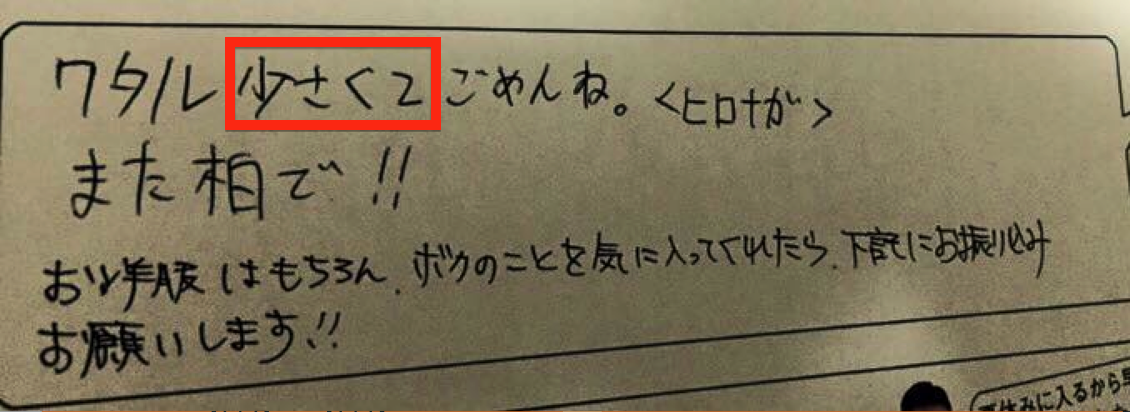 ワタル少さくてごめんね。<ヒロナガ>
また柏で!!
お洋服はもちろん、ボクのことを気に入ってくれたら、下記にお振り込み
お願いします!!
休みに入るから